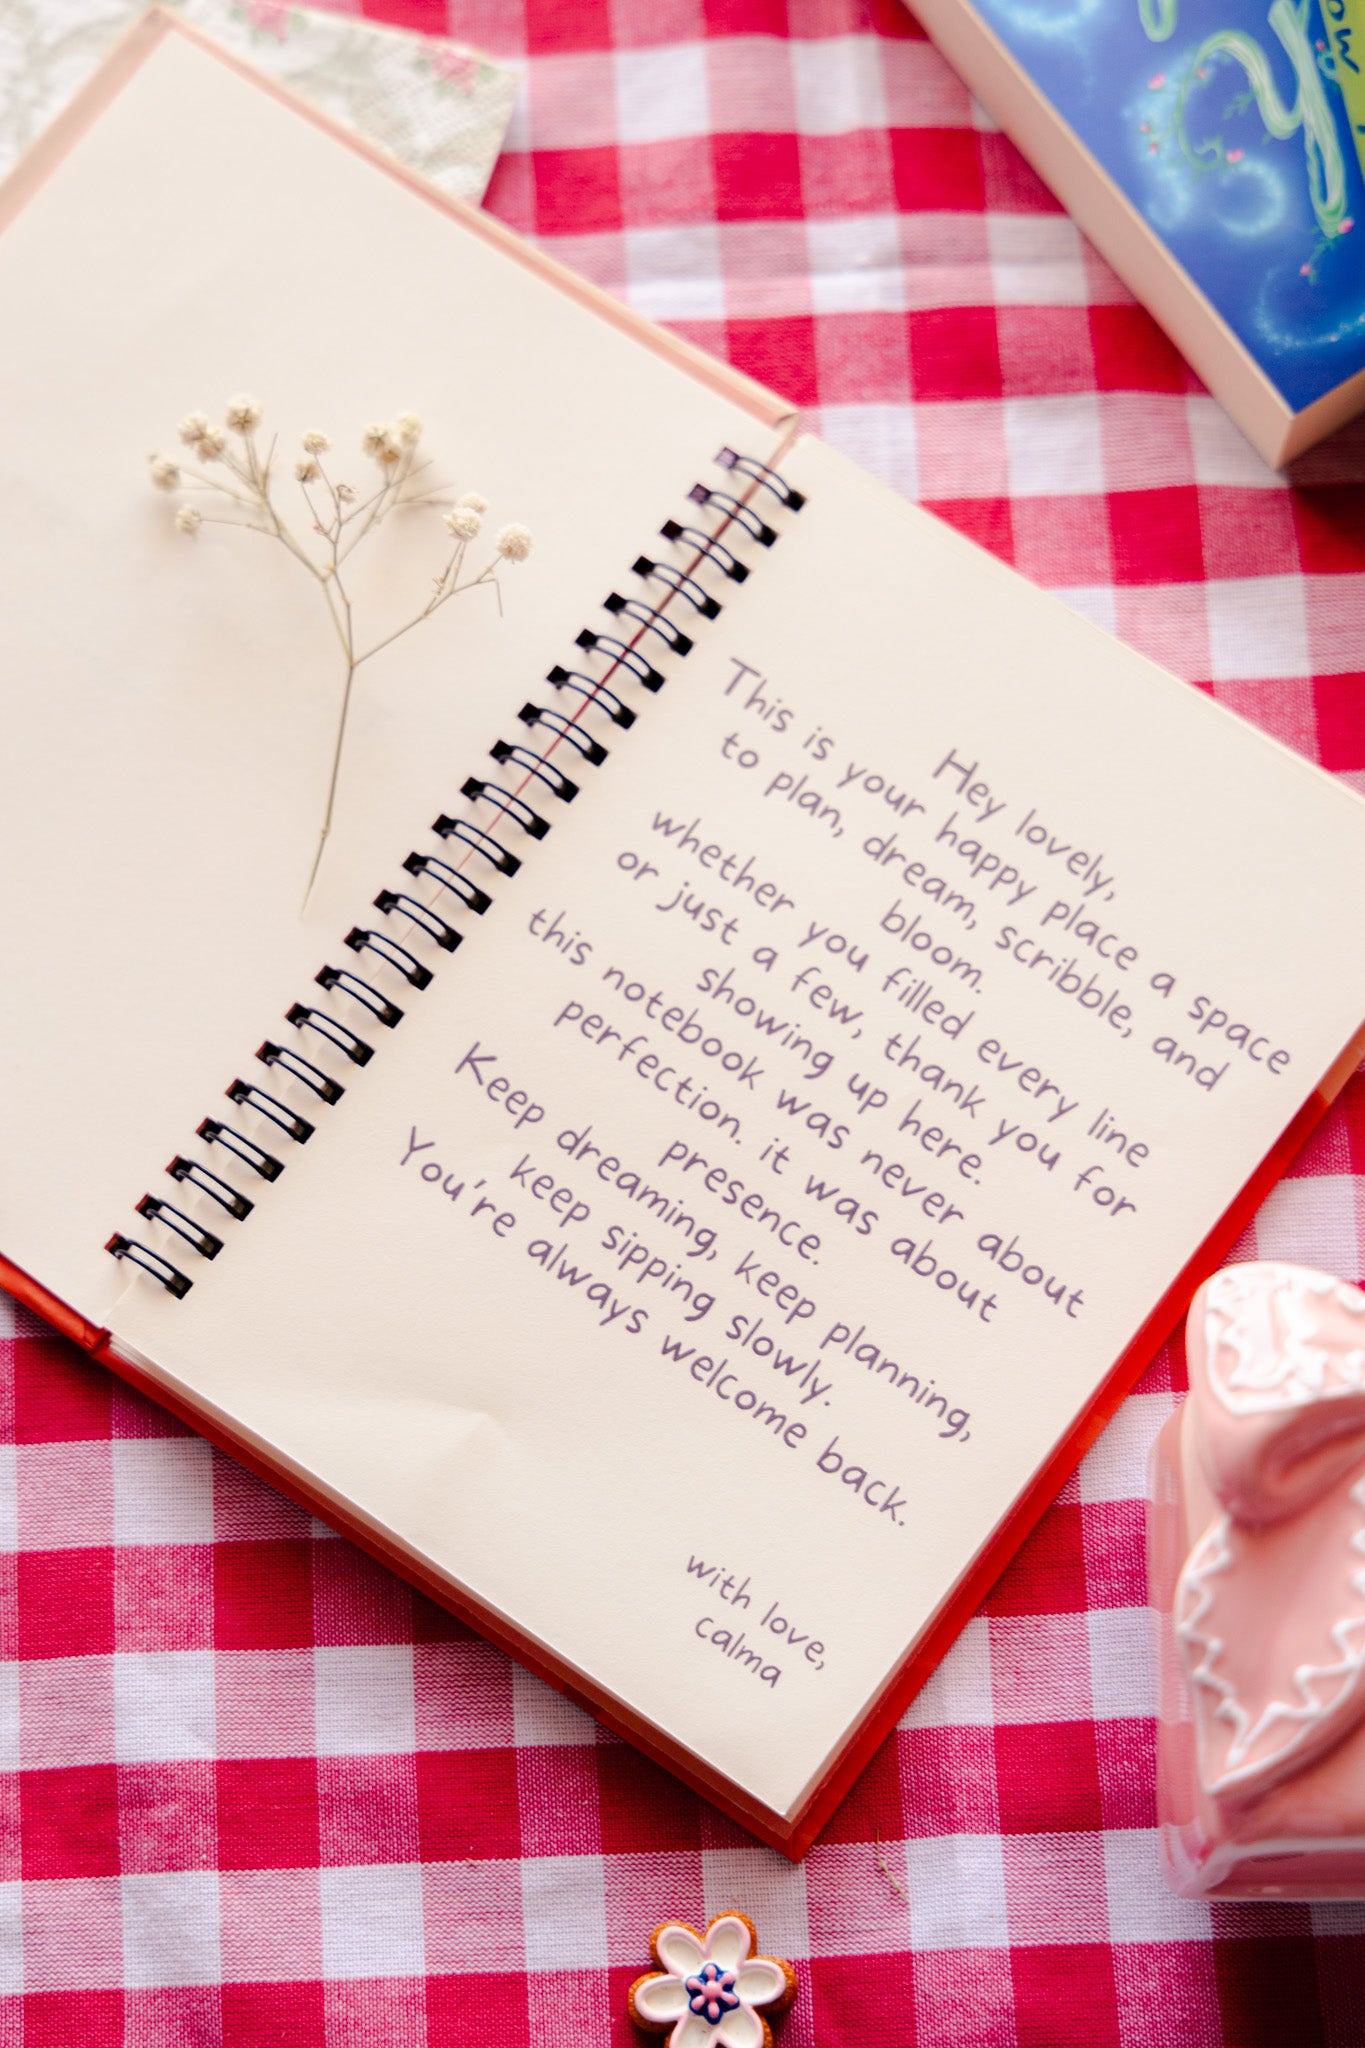 Hey lovely,
This is your happy place a space
to plan, dream, scribble, and
bloom.
whether you filled every line
or just a few, thank you for
showing up here.
this notebook was never about
perfection. it was about
presence.
Keep dreaming, keep planning,
keep sipping slowly.
You're always welcome back.
with love,
calma
ow